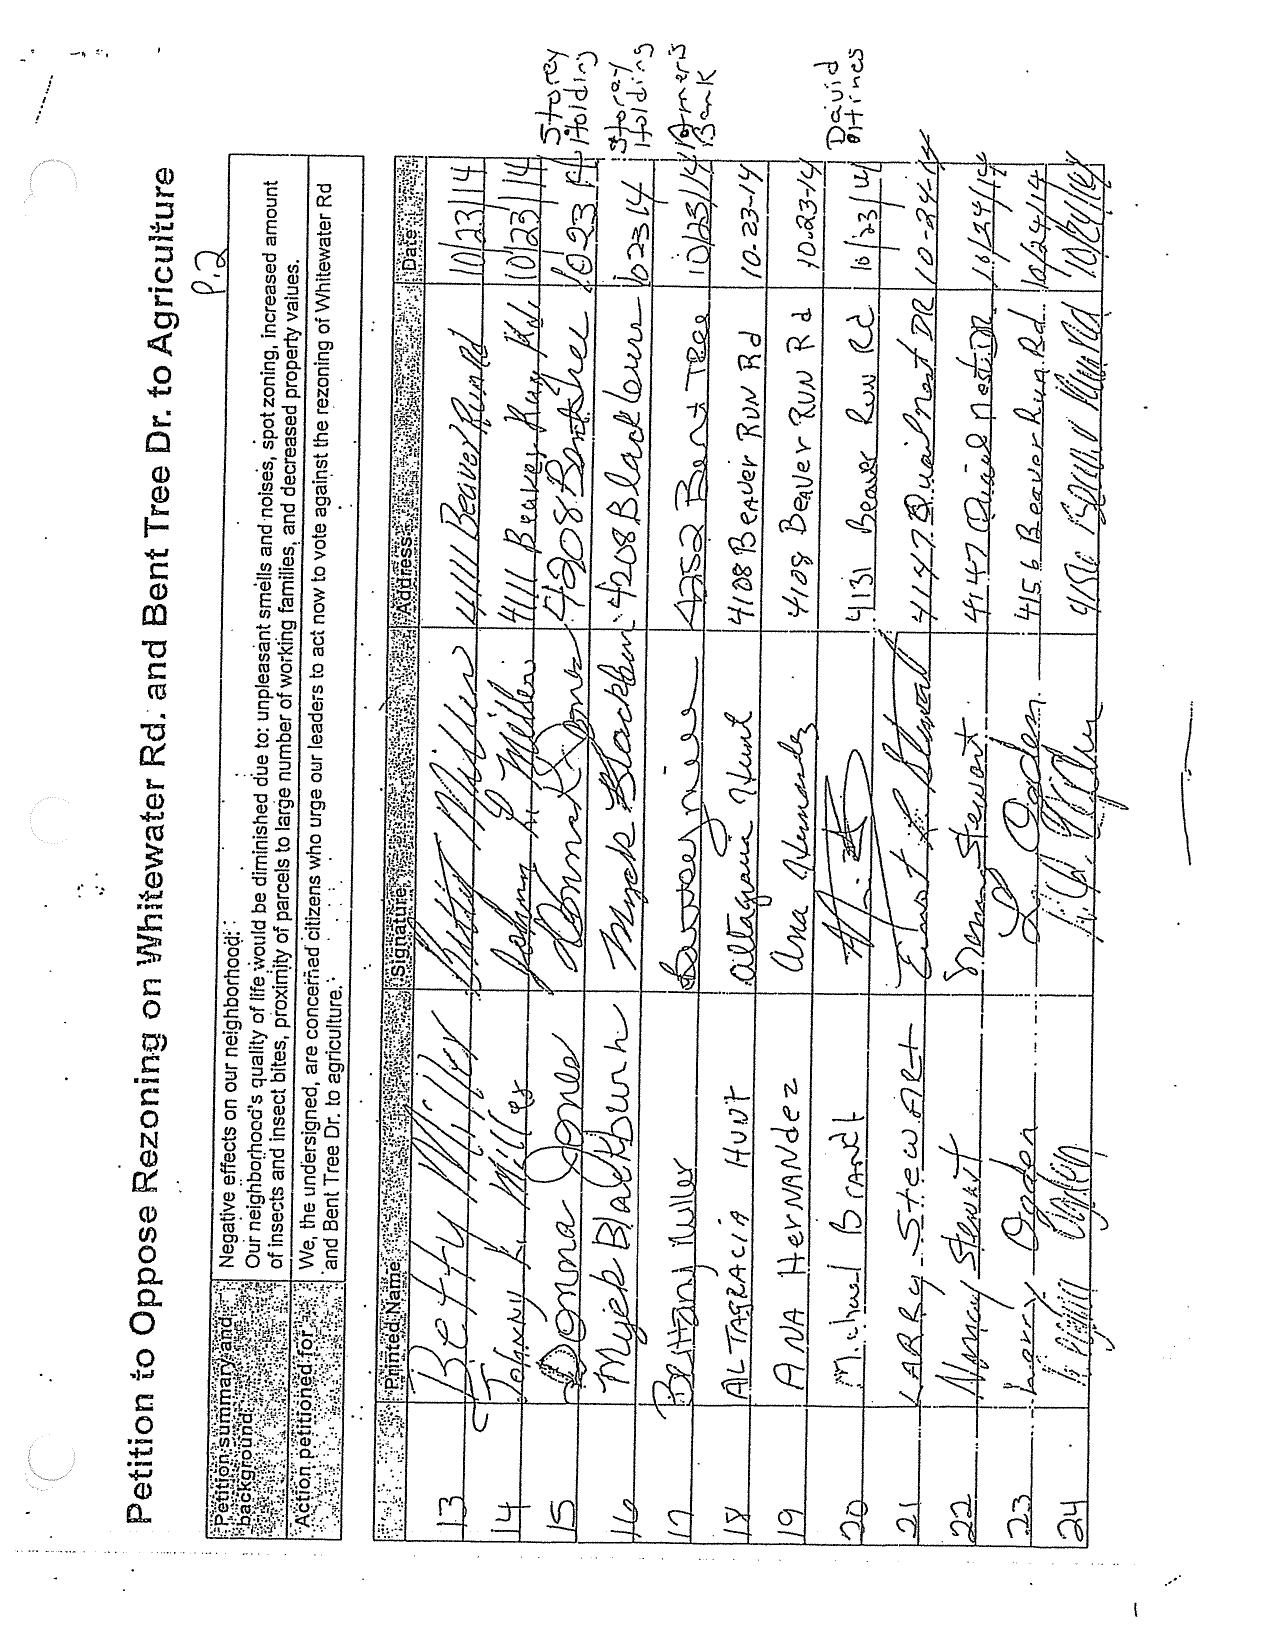 Petition to Oppose Rezoning on Whitewater Rd. and Bent Tree Dr. to Agriculture
P.2
Petition summary and background
Negative effects on our neighborhood:
Our neighborhood's quality of life would be diminished due to: unpleasant smells and noises, spot zoning, increased amount
of insects and insect bites, proximity of parcels to large number of working families, and decreased property values.
Action petitioned for
We, the undersigned, are concerned citizens who urge our leaders to act now to vote against the rezoning of Whitewater Rd
and Bent Tree Dr. to agriculture.
Printed Name Signature Address Date
13 Betty Miller Betty Miller 4111 Beaver Run Rd 10/23/14
14 Johnny L. Miller Johnny L Miller 4111 Beaver Run Rd 10/23/14
15 Donna Jones Donna Jones 4208 Bent Tree 10 23 14 Storey Holding
16 Myck Blackburn Myck Blackburn 4208 Blackburn 10 23 14 Storey Holding
17 Brittany Miller 4252 Bent Tree 10/23/14 Ameris Bank
18 ALTAGRACIA HUNT Altagracia Hunt 4108 BEAVER RUN Rd 10-23-14
19 ANA HERNANdez Ana Hernandez 4108 BEAVER RUN Rd 10-23-14
20 Michael Brandt 4131 Beaver Run Rd 10/23/14 David
21 LARRY Stewart Stewart 4147 Quail nest DR 10-24-14
22 Nancy Stewart Stewart 4147 Quail Nest DR 10/24/14
23 Larry Ogden Ogden 4156 Beaver Run Rd 10/24/14
24 4156 Run Rd 10/24/14